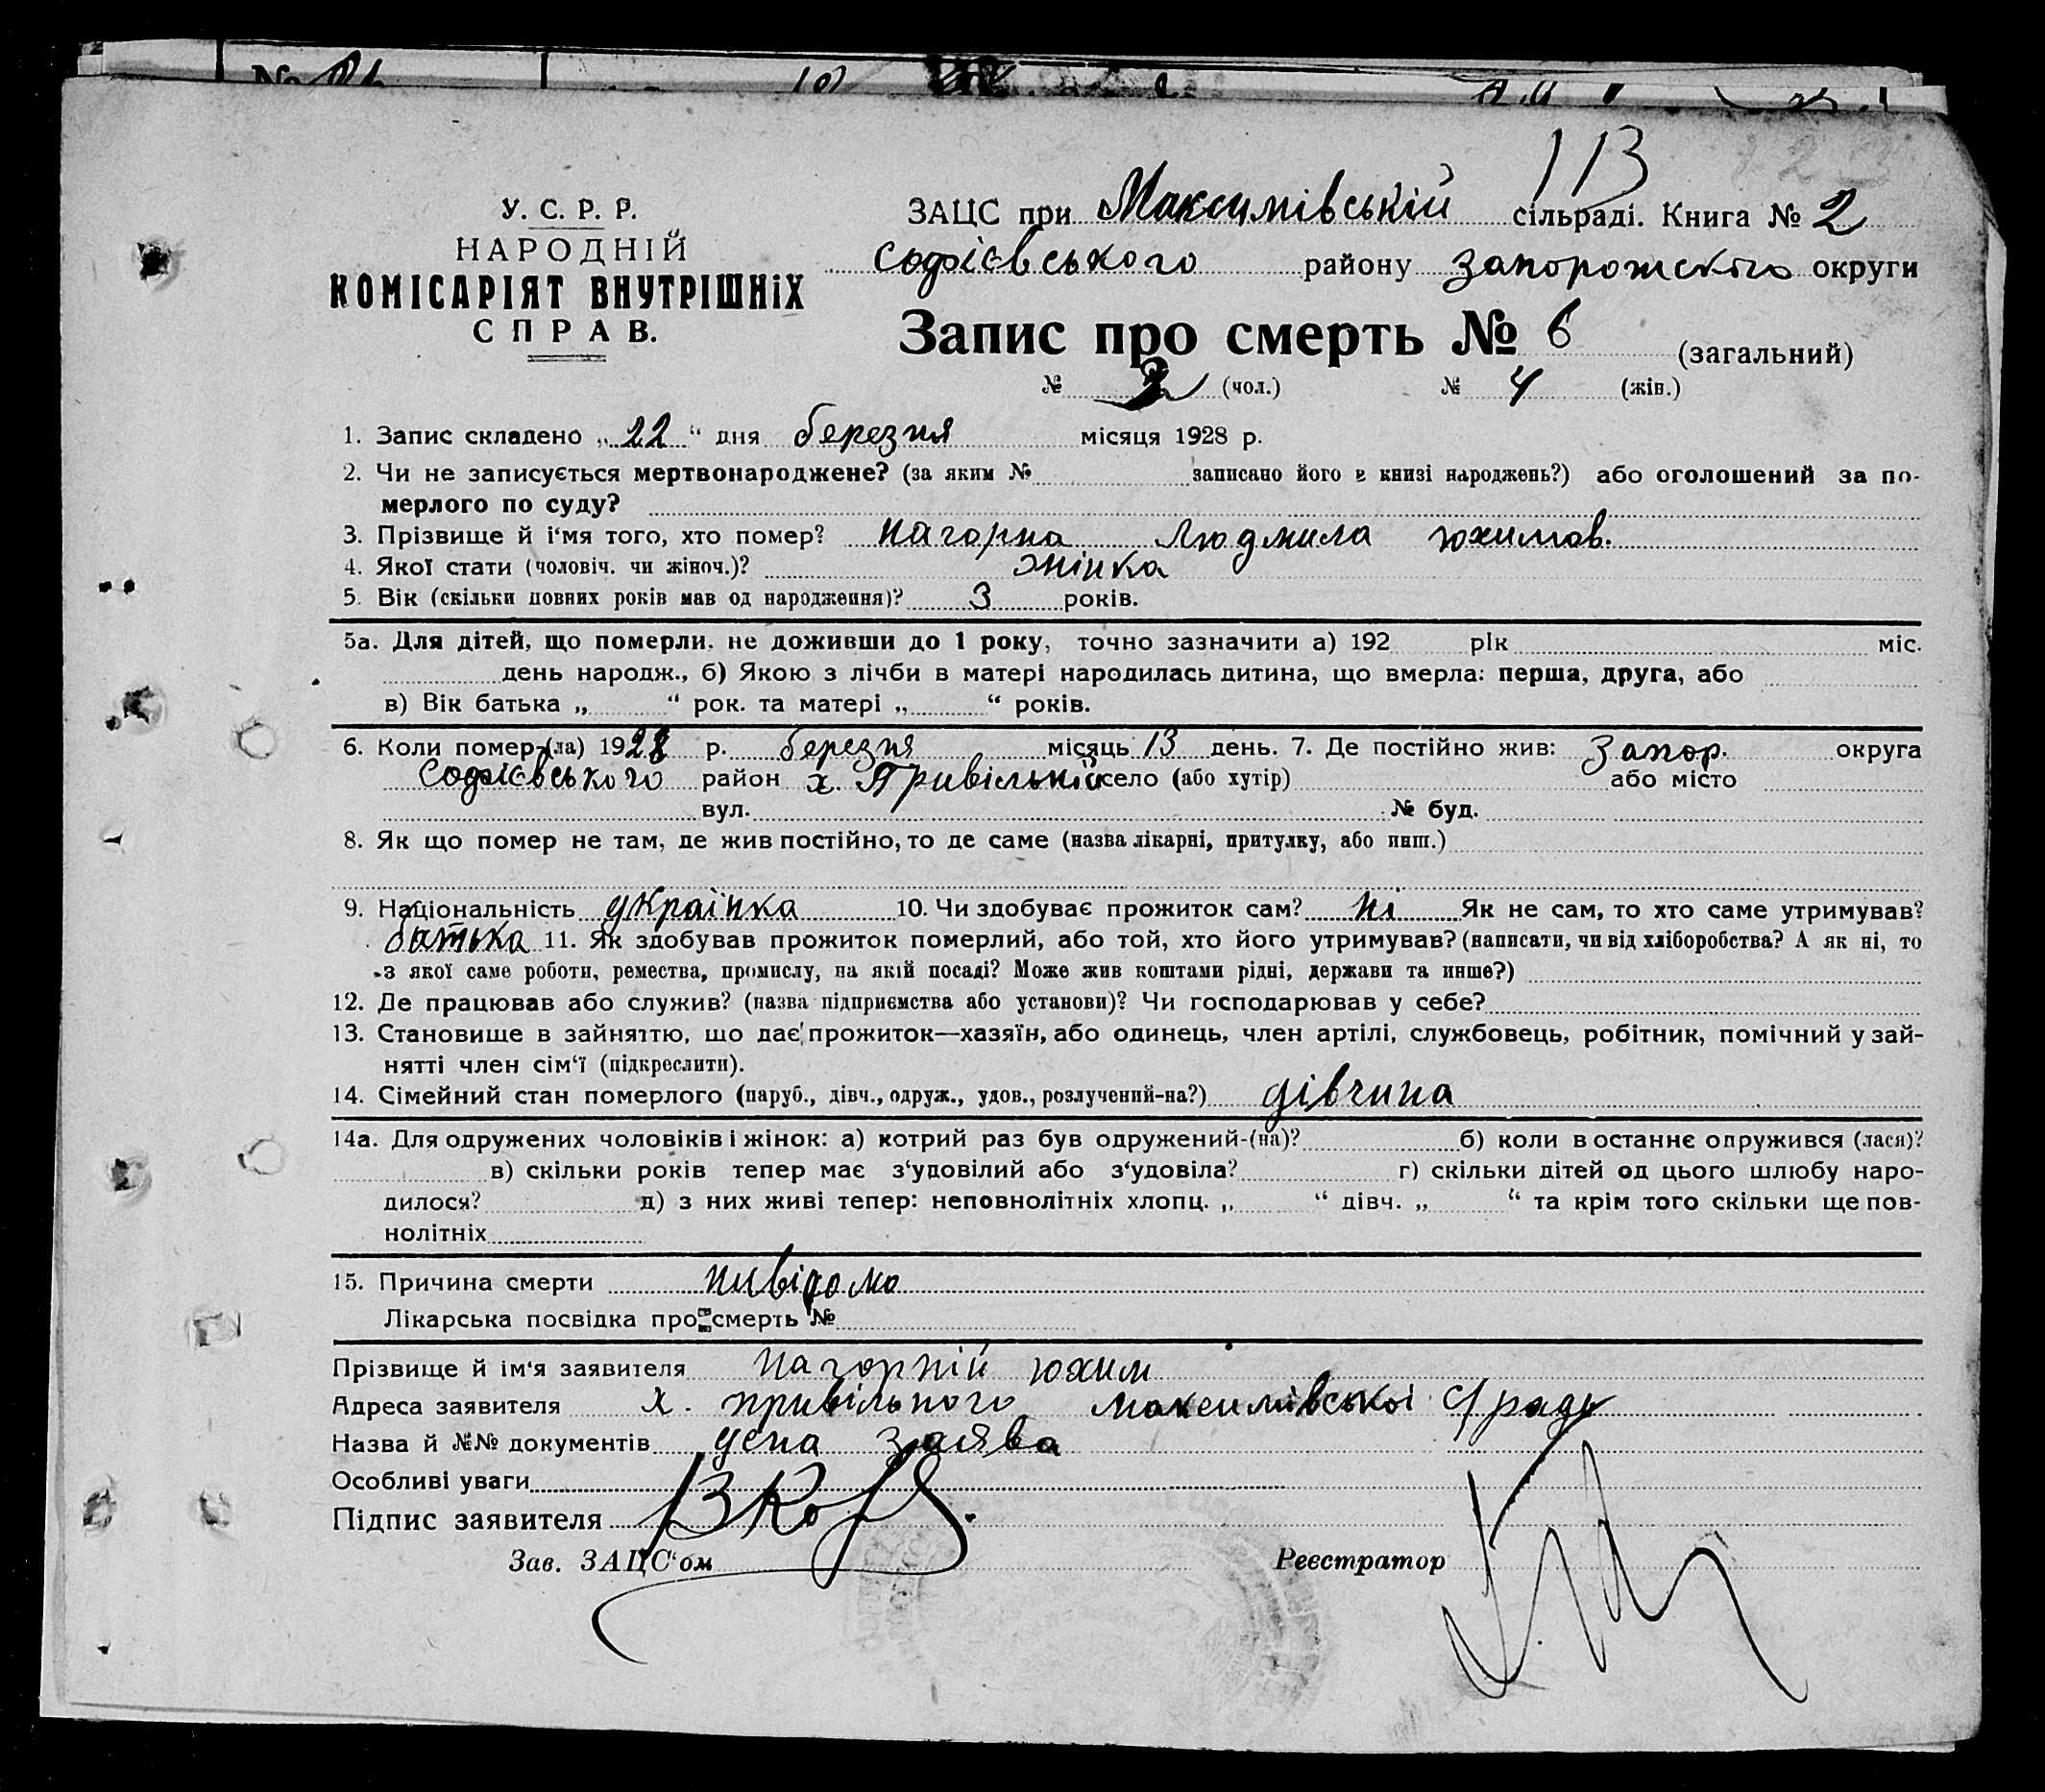 113
У. С. Р. Р.
НАРОДНІЙ
КОМІСАРІЯТ ВНУТРІШНіХ
СПРАВ.
ЗАЦС при Максимівській сільраді. Книга № 2
Софієвського району Запорожского округи
Запис про смерть № 6 (загальний)
№ 2 (чол.) № 4 (жін.)
1. Запис складено „22“ дня березня місяця 1928 р.
2. Чи не записується мертвонароджене? (за яким № записано його в книзі народжень?) або оголошений за по-
мерлого по суду?
3. Прізвище й і‘мя того, хто помер? Нагорна Людмила Юхимов.
4. Якої стати (чоловіч. чи жіноч.)? жінка
5. Вік (скільки повних років мав од народження)? 3 років.
5а. Для дітей, що померли, не доживши до 1 року, точно зазначити а) 192 рік міс.
день народж., б) Якою з лічби в матері народилась дитина, що вмерла: перша, друга, або
в) Вік батька „ “ рок. та матері „ “ років.
6. Коли помер (ла) 1928 р. березня місяць 13 день. 7. Де постійно жив: Запор. округа
Софієвського район х. Привільний село (або хутір) або місто
вул. № буд.
8. Як що помер не там, де жив постійно, то де саме (назва лікарні, притулку, або инш.)
9. Національність українка 10. Чи здобуває прожиток сам? ні Як не сам, то хто саме утримував?
батько 11. Як здобував прожиток померлий, або той, хто його утримував? (написати, чи від хліборобства? А як ні, то
з якої саме роботи, ремества, промислу, на якій посаді? Може жив коштами рідні, держави та инше?)
12. Де працював або служив? (назва підприємства або установи)? Чи господарював у себе?
13. Становище в зайняттю, що дає прожиток—хазяїн, або одинець, член артілі, службовець, робітник, помічний у зай-
нятті член сім‘ї (підкреслити).
14. Сімейний стан померлого (паруб., дівч., одруж., удов., розлучений-на?) дівчина
14а. Для одружених чоловіків і жінок: а) котрий раз був одружений-(на)? б) коли востаннє одружився (лася)?
в) скільки років тепер має з‘удовілий або з‘удовіла? г) скільки дітей од цього шлюбу наро-
дилося? д) з них живі тепер: неповнолітніх хлопц. „ “ дівч. „ “ та крім того скільки ще пов-
нолітніх
15. Причина смерти нивідомо
Лікарська посвідка про смерть №
Прізвище й ім‘я заявителя Нагорній Юхим
Адреса заявителя х. Привільного Максимівської с/ради
Назва й №№ документів усна заява
Особливі уваги
Підпис заявителя
Зав. ЗАЦС‘ом Реєстратор